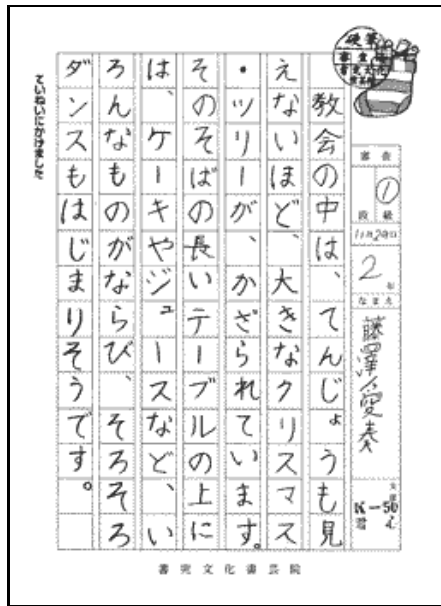 硬筆
審査
段級
①
11月29日
2年
なまえ
藤澤愛奏
支部
K-50
君心
教会の中は、てんじょうも見
えないほど、大きなクリスマス
・ツリーが、かざられています。
そのそばの長いテーブルの上に
は、ケーキやジュースなど、い
ろんなものがならび、そろそろ
ダンスもはじまりそうです。
ていねいにかけました
書究文化書芸院